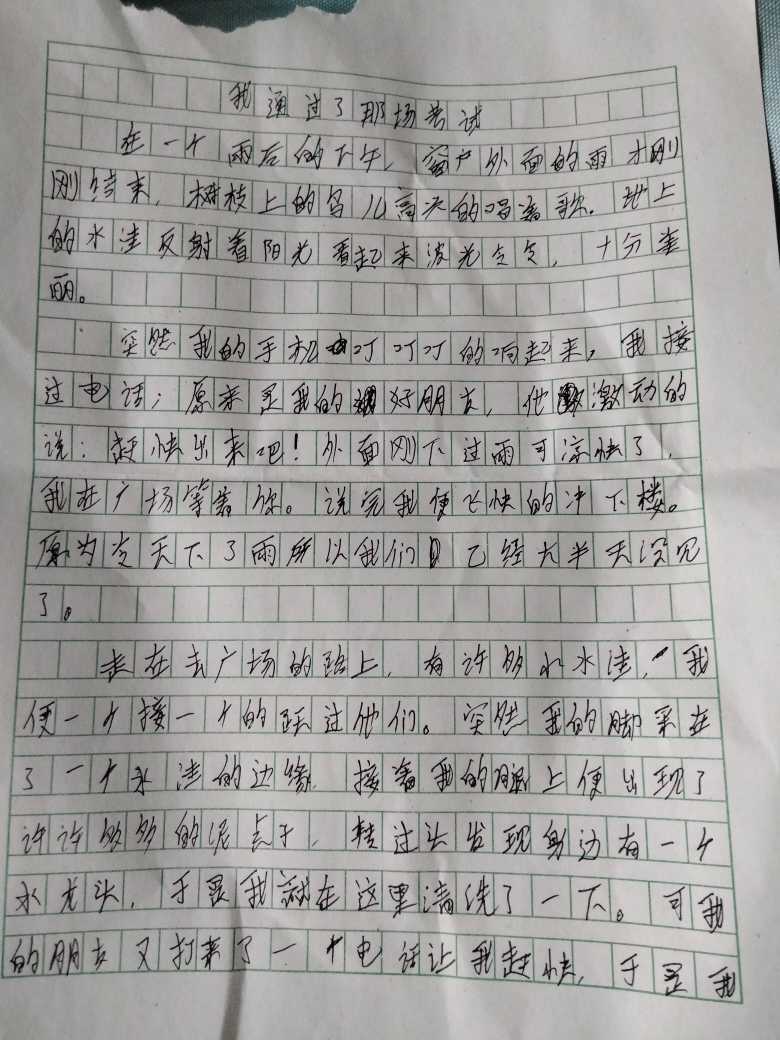 我通过了那场考试
在一个雨后的下午，窗户外面的雨才刚
刚结束，树枝上的鸟儿高兴的唱着歌。地上
的水洼反射着阳光看起来波光点点，十分美
丽。
突然我的手机叮叮叮的响起来，我接
过电话；原来是我的好朋友，他激动的
说：赶快出来吧！外面刚下过雨可凉快了，
我在广场等着你。说完我便飞快的冲下楼。
原为今天下了雨所以我们已经大半天没见
了。
走在去广场的路上，有许多小水洼，我
便一个接一个的跃过他们。突然我的脚采在
了一个水洼的边缘，接着我的腿上便出现了
许许多多的泥点子，转过头发现身边有一个
水龙头，于是我就在这里清洗了一下。可我
的朋友又打来了一个电话让我赶快，于是我